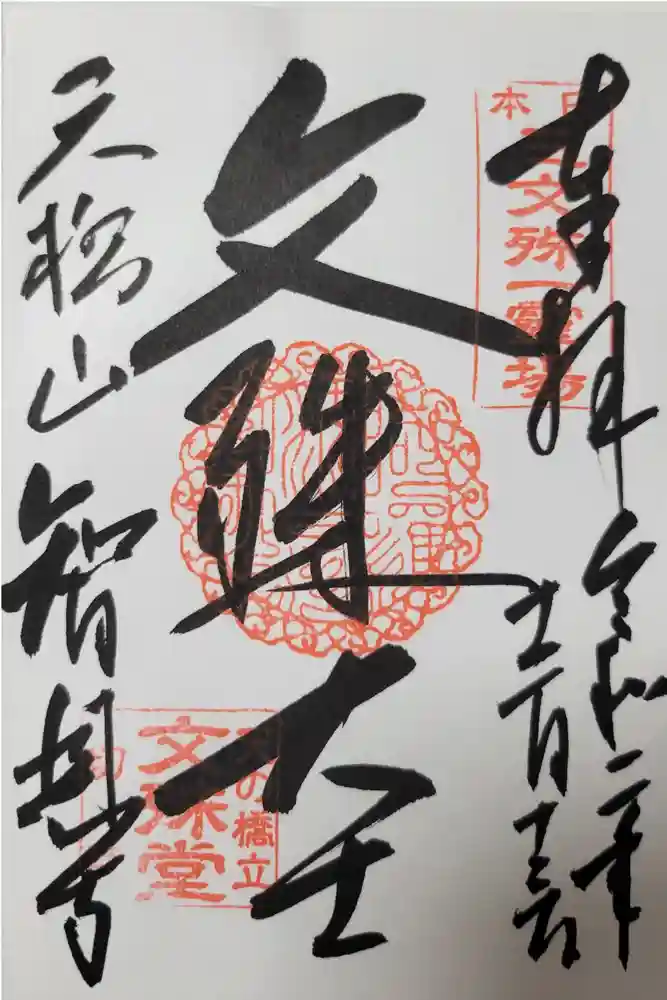 奉拝
令和二年
十一月十三日
日本
三文殊一靈場
文殊大士
天の橋立
文殊堂
天橋山
智恩寺